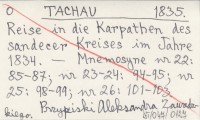 O TACHAU 1835.
Reise in die Karpathen des
sandecer Kreises im Jahre
1834. — Mnemosyne nr 22:
85-87; nr 23-24: 94-95; nr
25: 98-99; nr 26: 101-103.
Brzypiski Aleksandra Zawadz-
kiego.